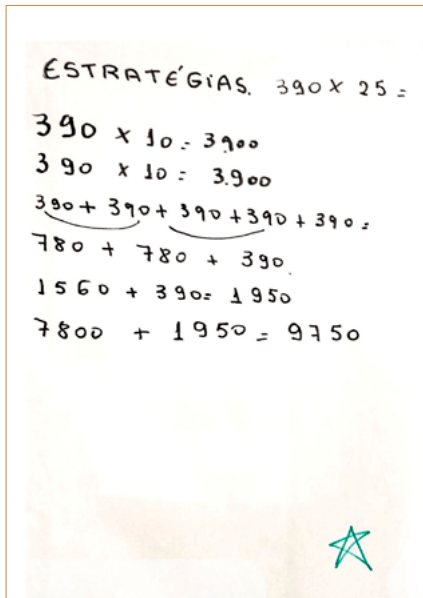 ESTRATÉGIAS. 390 X 25 =
390 x 10 = 3900
390 x 10 = 3.900
390 + 390 + 390 + 390 + 390 =
780 + 780 + 390.
1560 + 390 = 1950
7800 + 1950 = 9750